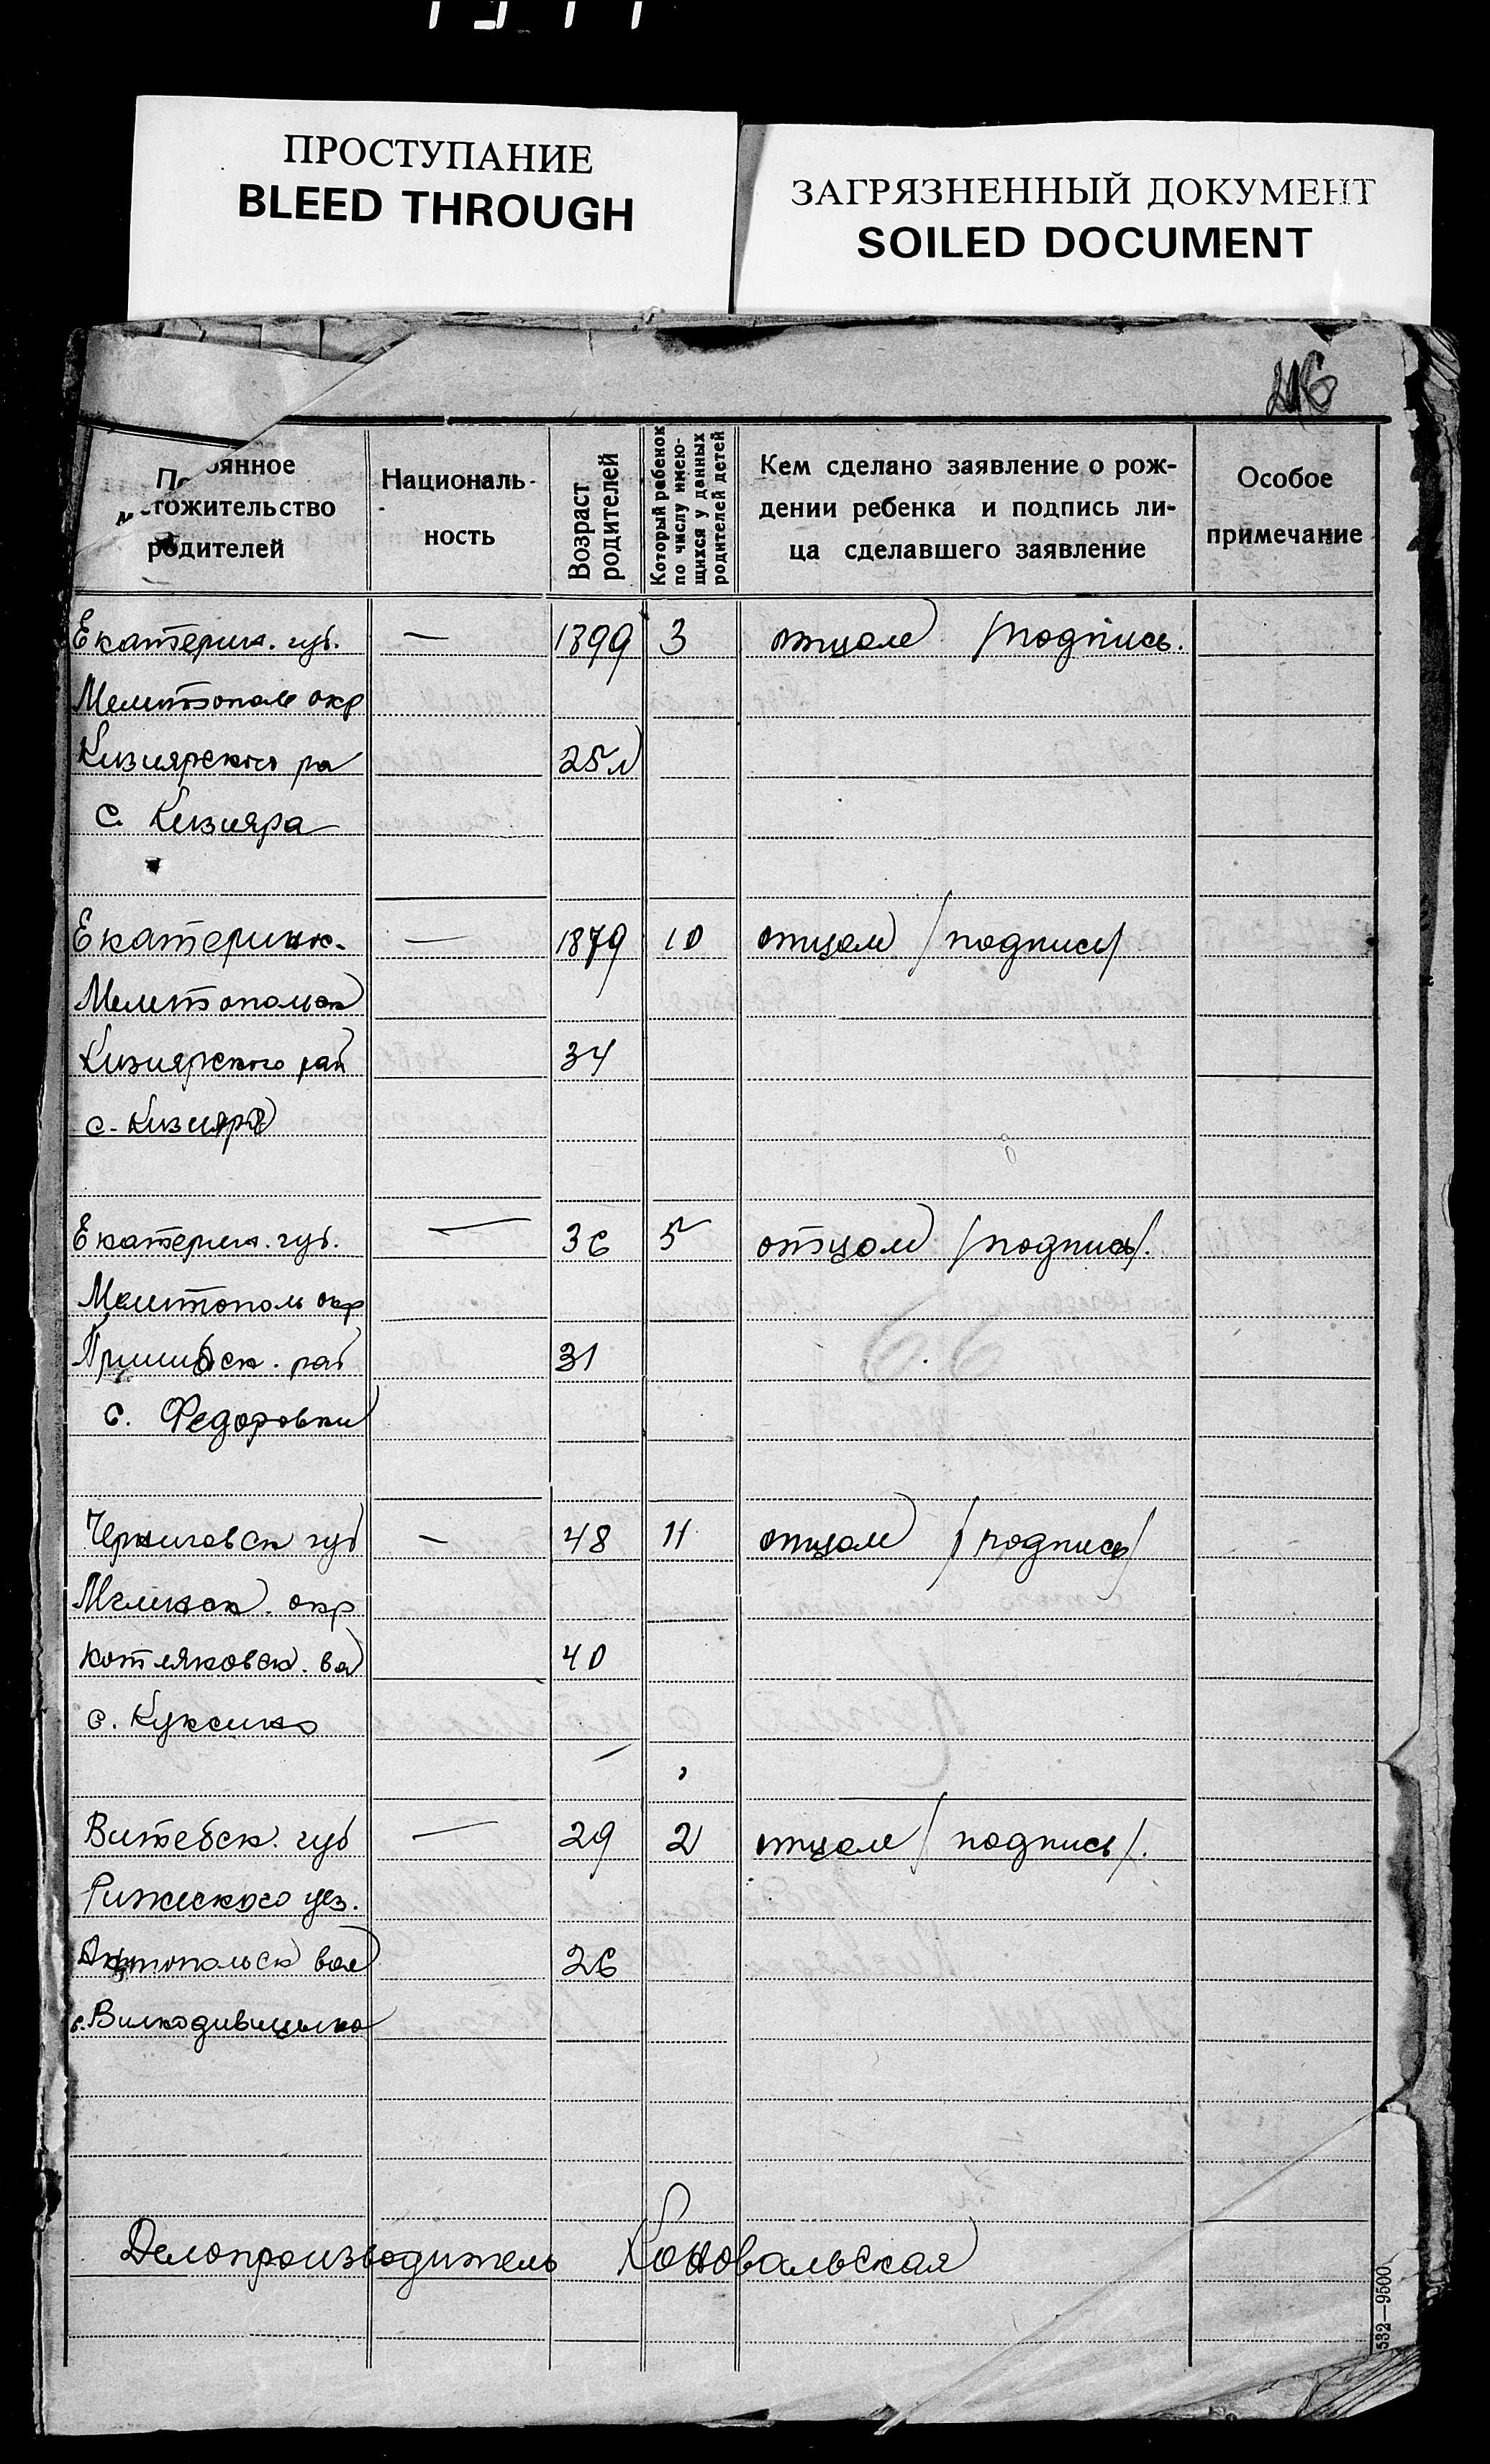 ПРОСТУПАНИЕ
BLEED THROUGH
ЗАГРЯЗНЕННЫЙ ДОКУМЕНТ
SOILED DOCUMENT
оянное
стожительство
родителей
Националь-
ность
Возраст
родителей
Который ребенок
по числу имею-
щихся у данных
родителей детей
Кем сделано заявление о рож-
дении ребенка и подпись ли-
ца сделавшего заявление
Особое
примечание
Екатерин. губ. — 1899 3 отцом /подпись.
Мелитополь окр
Кизиярского ра 25 л
с. Кизияра
Екатеринк. — 1879 10 отцом /подпись/
Мелитопольск
Кизиярского рай 34
с. Кизияра
Екатерин. губ. — 36 5 отцом /подпись/.
Мелитополь окр
Пришибск. рай 31
с. Федоровки
Черниговск губ — 48 11 отцом /подпись/
Мглинск. окр
Котляковск. во 40
с. Куксино
Витебск. губ — 29 2 отцом /подпись/.
Режицкого уез.
вол 26
с.
Делопроизводитель Коновальская
532—9500